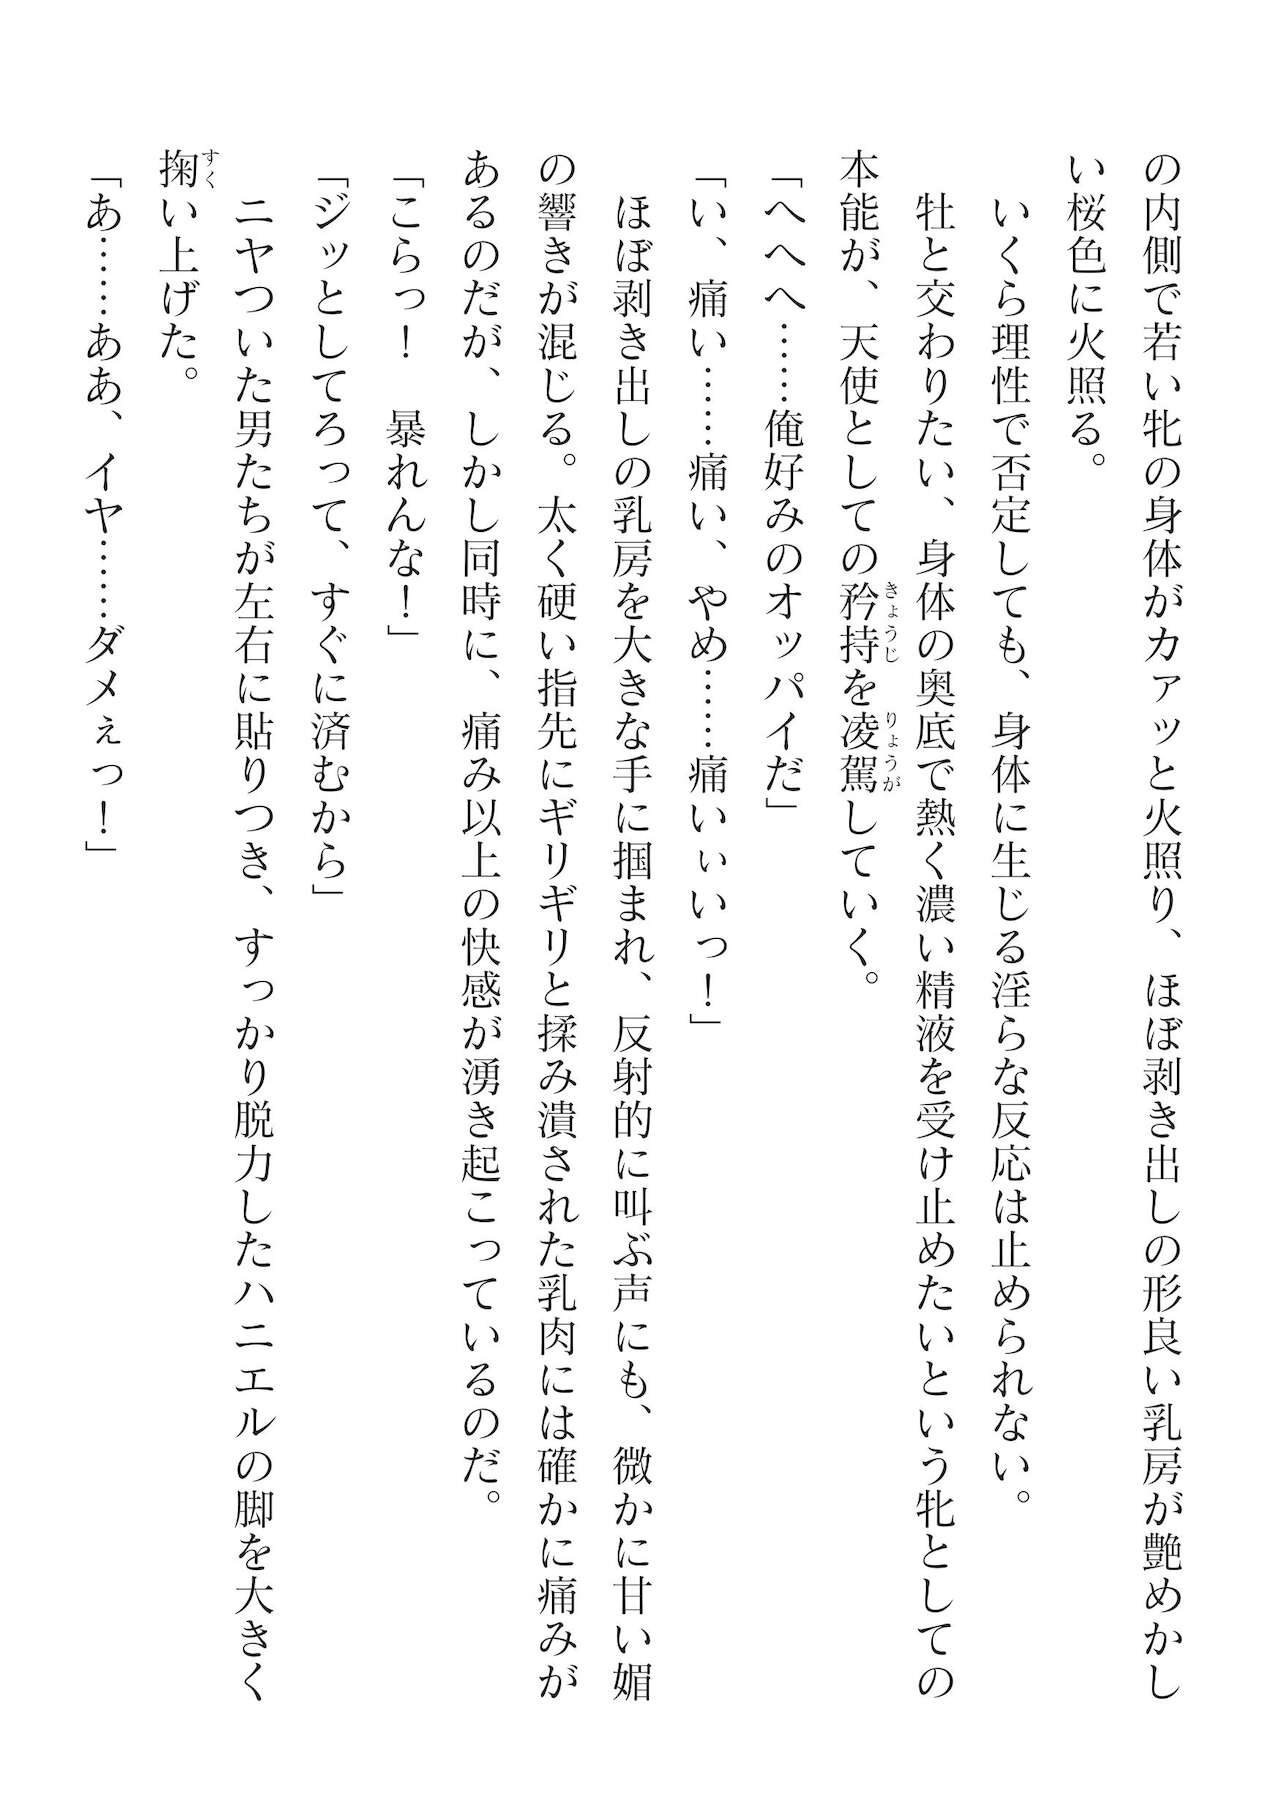 の内側で若い牝の身体がカァッと火照り、ほぼ剥き出しの形良い乳房が艶めかし
い桜色に火照る。
いくら理性で否定しても、身体に生じる淫らな反応は止められない。
牡と交わりたい、身体の奥底で熱く濃い精液を受け止めたいという牝としての
きょうじ りょうが
本能が、天使としての矜持を凌駕していく。
「へへへ……俺好みのオッパイだ」
「い、痛い……痛い、やめ……痛いぃいっ！」
ほぼ剥き出しの乳房を大きな手に掴まれ、反射的に叫ぶ声にも、微かに甘い媚
の響きが混じる。太く硬い指先にギリギリと揉み潰された乳肉には確かに痛みが
あるのだが、しかし同時に、痛み以上の快感が湧き起こっているのだ。
「こらっ！　暴れんな！」
「ジッとしてろって、すぐに済むから」
ニヤついた男たちが左右に貼りつき、すっかり脱力したハニエルの脚を大きく
すく
掬い上げた。
「あ……ああ、イヤ……ダメぇっ！」